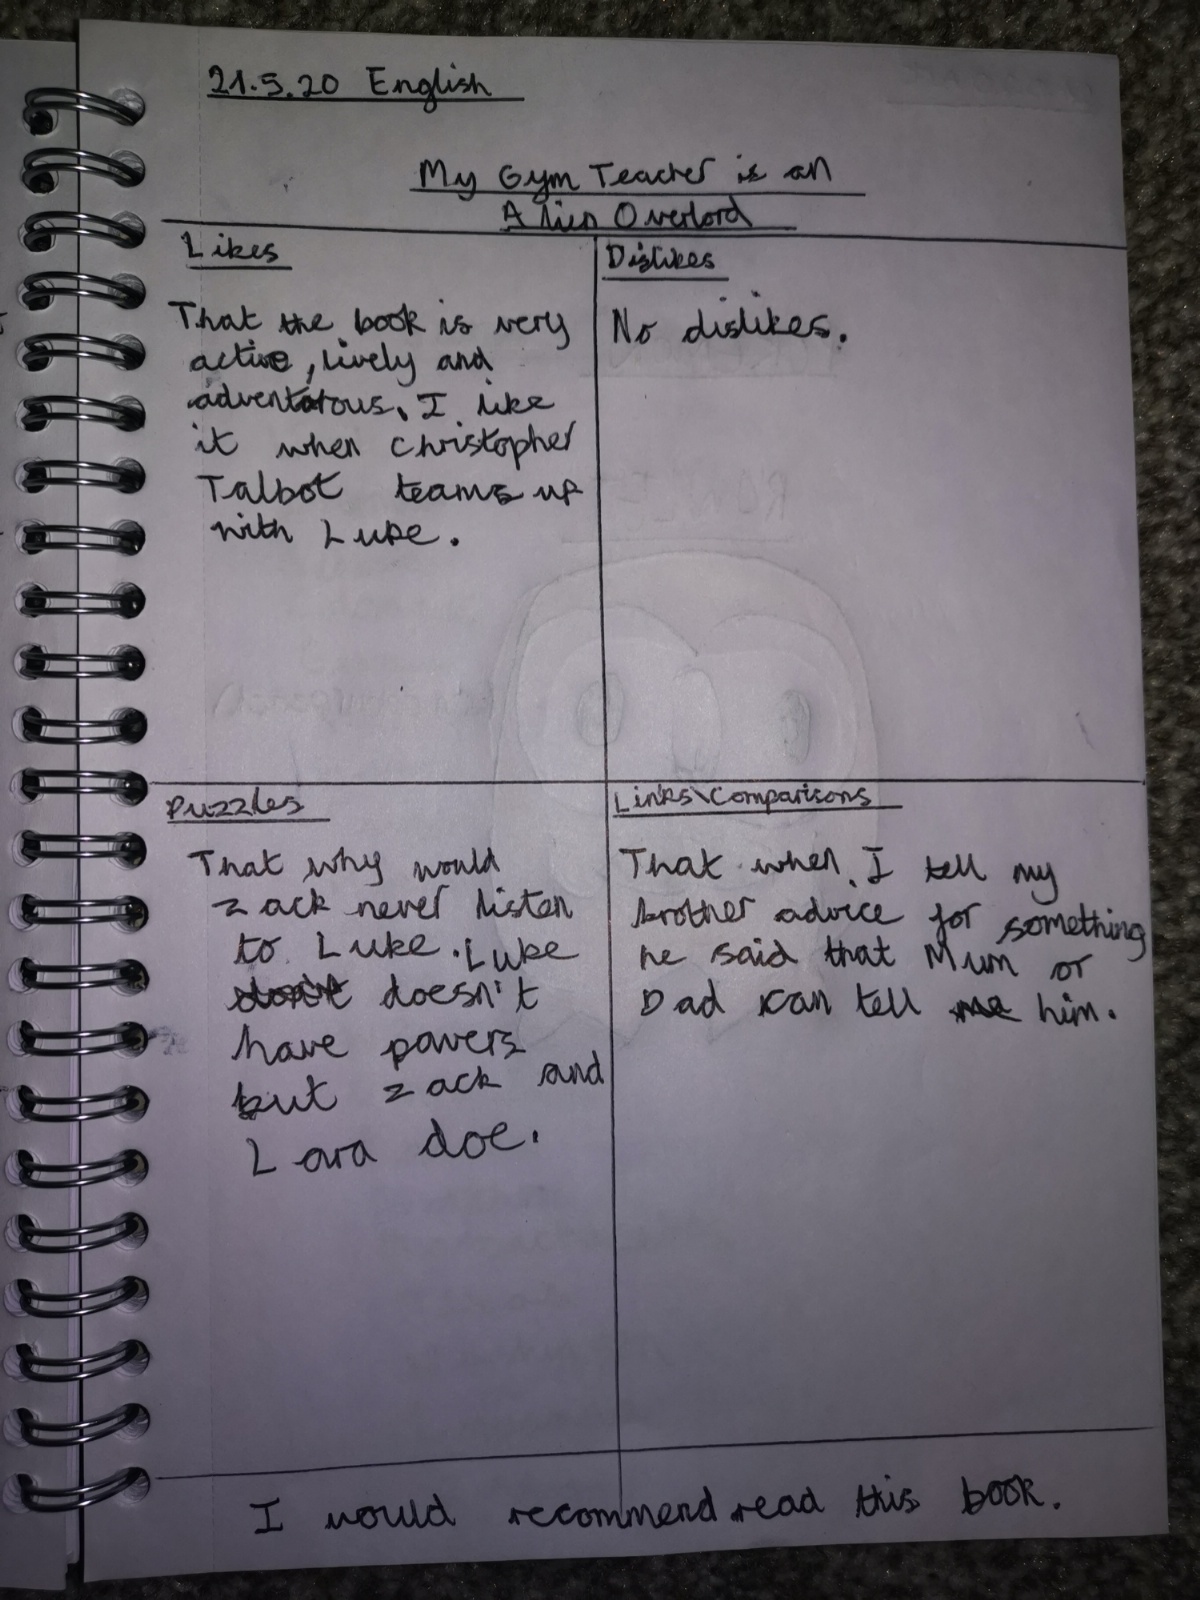 21.5.20 English
My Gym Teacher is an
Alien Overlord
Likes
That the book is very
active, lively and
adventorous. I like
it when Christopher
Talbot teams up
with Luke.
Dislikes
No dislikes.
Puzzles
That why would
Zack never listen
to Luke. Luke
doesn't
have powers
but Zack and
Lara doe.
Links\Comparisons
That when I tell my
brother advice for something
he said that Mum or
Dad can tell him.
I would recommend read this book.